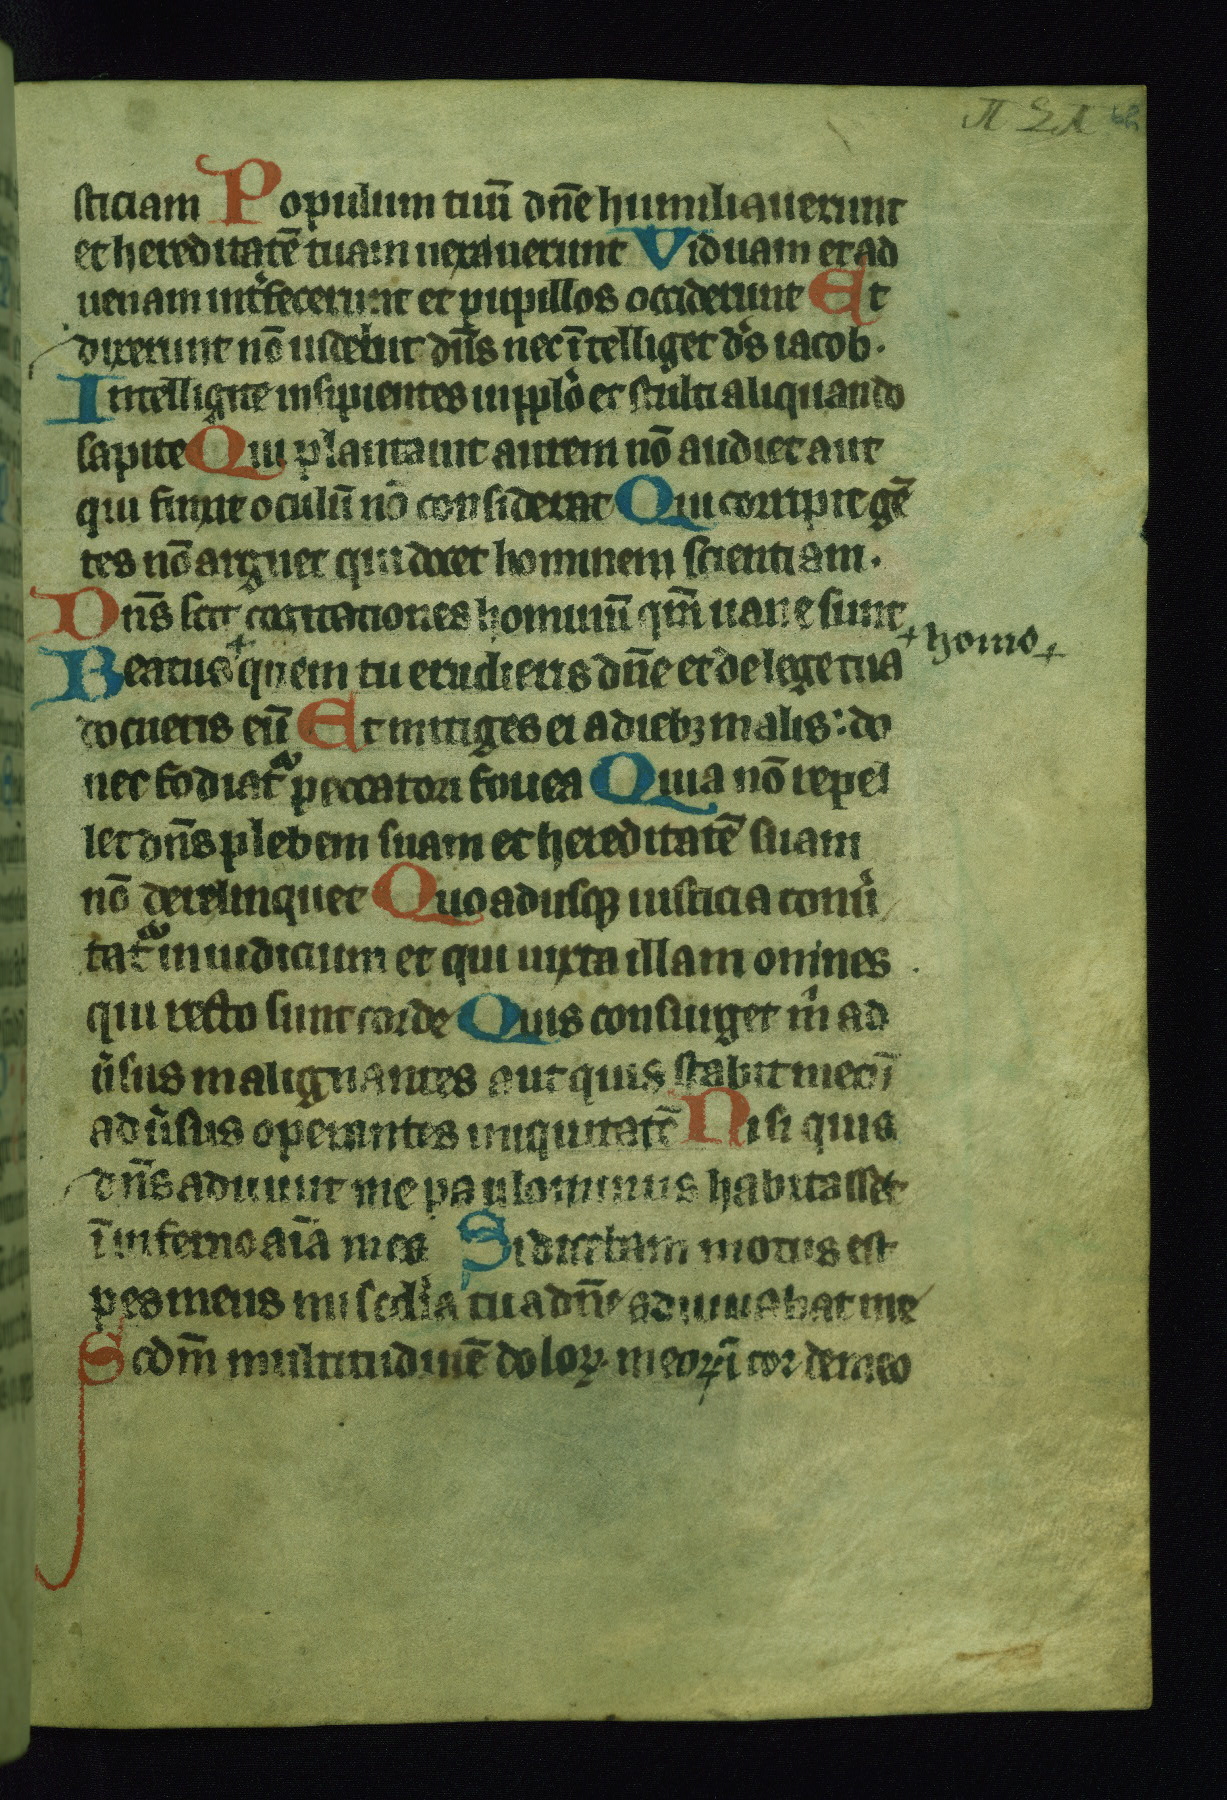 sticiam Populum tuū dn̄e humiliauerunt
et hereditatē tuam uexauerunt Viduam et ad
uenam int̉fecerunt et pupillos occiderunt Et
dixerunt nō uidebit dn̄s nec ītelliget ds̄ iacob.
Intelligite insipientes in pplō et stulti aliquando
sapite Qui plantauit aurem nō audiet aut
qui finxit oculū nō considerat Qui corripit gē
tes nō arguet qui docet hominem scientiam.
Dn̄s scit cogitationes hominū qm̄ uane sunt
+ homo +
Beatus + quem tu erudieris dn̄e et de lege tua
docueris eū Et mitiges ei a dieb; malis: do
nec fodiat᷑ peccatori fouea Quia nō repel
let dn̄s plebem suam et hereditatē suam
nō derelinquet Quoadusq; iusticia conu̾
tat᷑ in iudicium et qui iuxta illam omnes
qui recto sunt corde Quis consurget m̍ ad
u̾sus malignantes aut quis stabit mecū
adu̾sus operantes iniquitatē Nisi quia
dn̄s adiuuit me paulominus habitasset
ī inferno aīa mea Si dicebam motus est
pes meus misc̄dia tua dn̄e adiuuabat me
Scdm̄ multitudinē doloꝝ meoꝝ ī corde meo